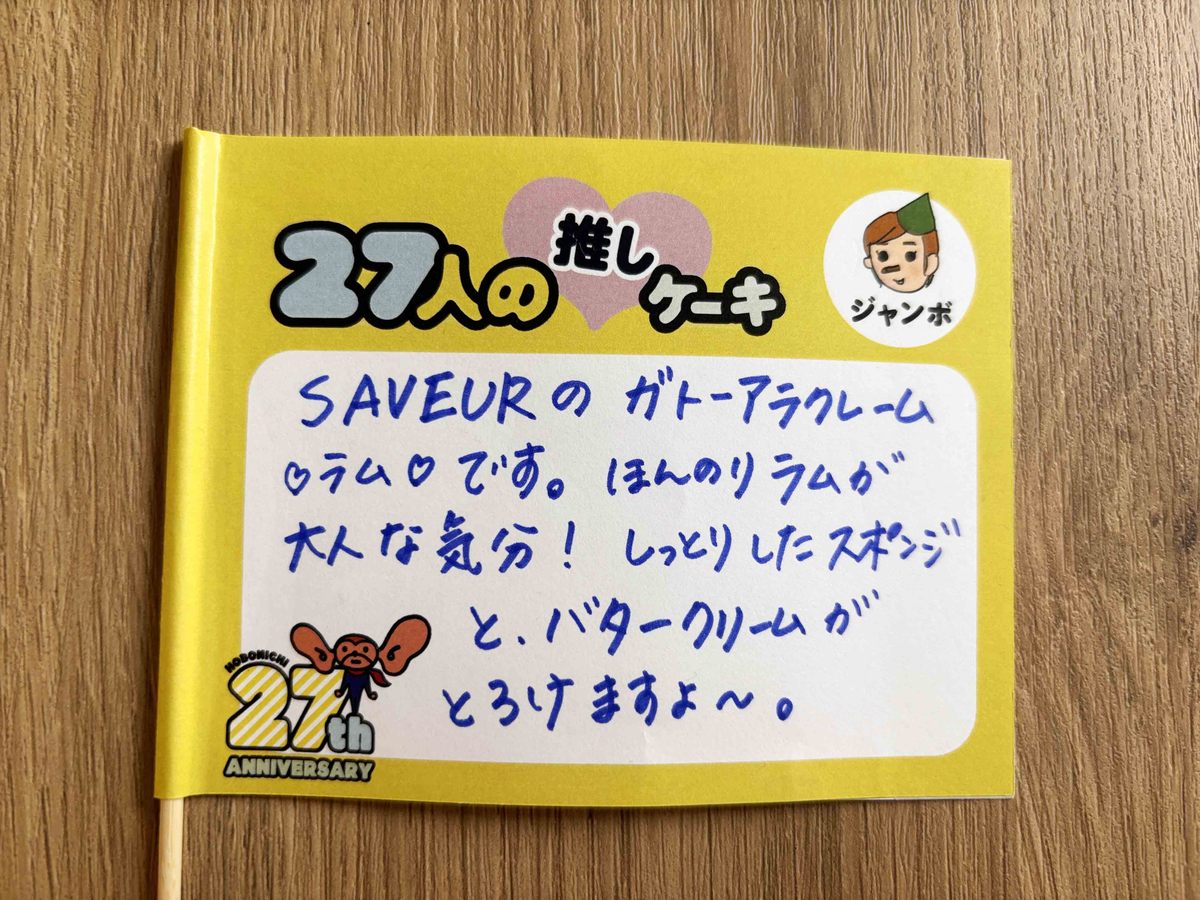 27人の推しケーキ
ジャンボ
SAVEURの ガトーアラクレーム
♡ラム♡ です。ほんのりラムが
大人な気分！ しっとりしたスポンジ
と、バタークリームが
とろけますよ〜。
HOBONICHI
27th
ANNIVERSARY